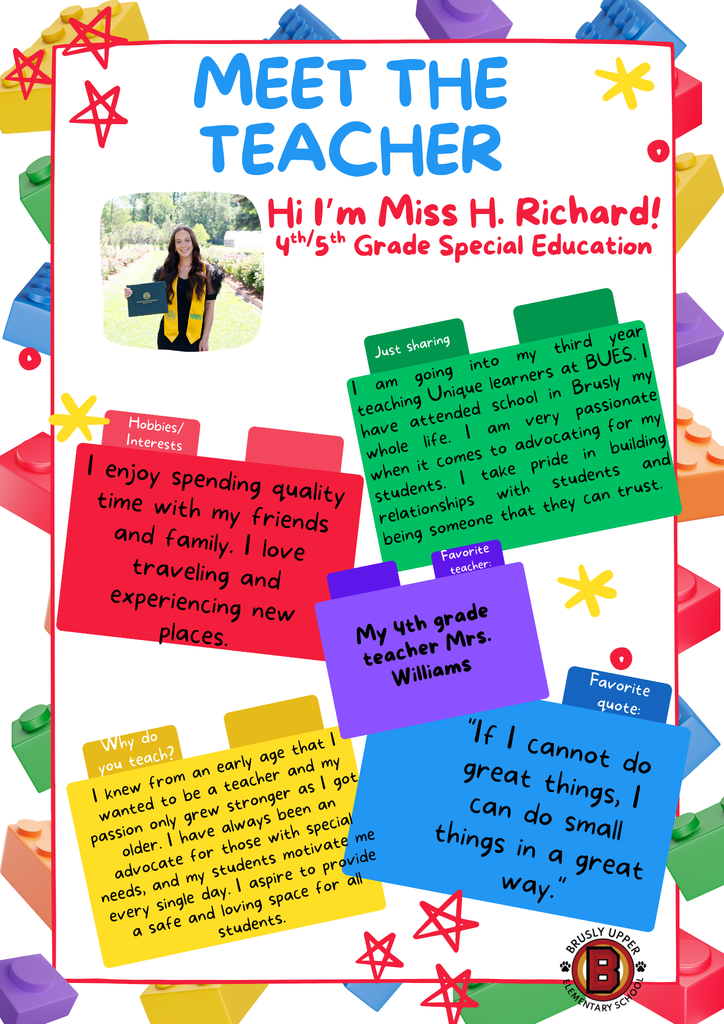 MEET THE
TEACHER
Hi I'm Miss H. Richard!
4th/5th Grade Special Education
Just sharing
I am going into my third year
teaching Unique learners at BUES. I
have attended school in Brusly my
whole life. I am very passionate
when it comes to advocating for my
students. I take pride in building
relationships with students and
being someone that they can trust.
Hobbies/
Interests
I enjoy spending quality
time with my friends
and family. I love
traveling and
experiencing new
places.
Favorite
teacher:
My 4th grade
teacher Mrs.
Williams
Favorite
quote:
"If I cannot do
great things, I
can do small
things in a great
way."
Why do
you teach?
I knew from an early age that I
wanted to be a teacher and my
passion only grew stronger as I got
older. I have always been an
advocate for those with special
needs, and my students motivate me
every single day. I aspire to provide
a safe and loving space for all
students.
BRUSLY UPPER
B
ELEMENTARY SCHOOL